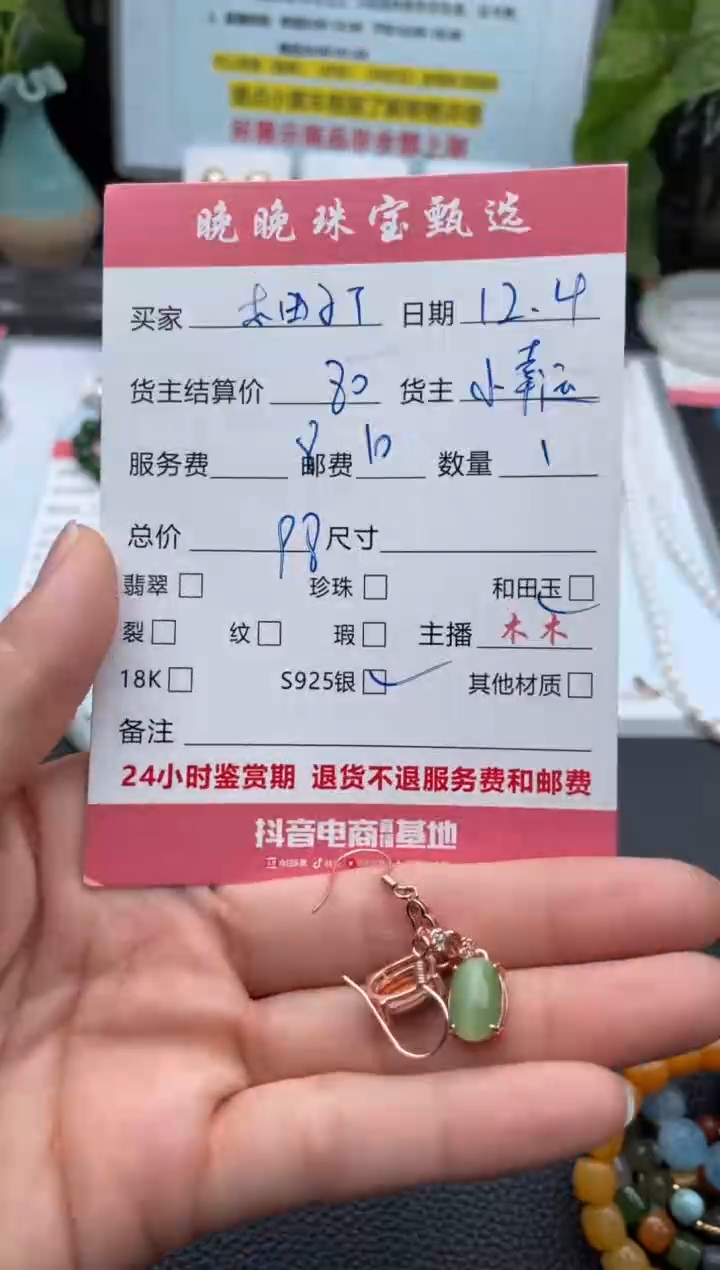 晚晚珠宝甄选
买家 日期 12.4
货主结算价 80 货主 小幸运
服务费 8 邮费 10 数量 1
总价 98 尺寸
翡翠 珍珠 和田玉
裂 纹 瑕 主播 木木
18K S925银 其他材质
备注
24小时鉴赏期 退货不退服务费和邮费
抖音电商直播基地